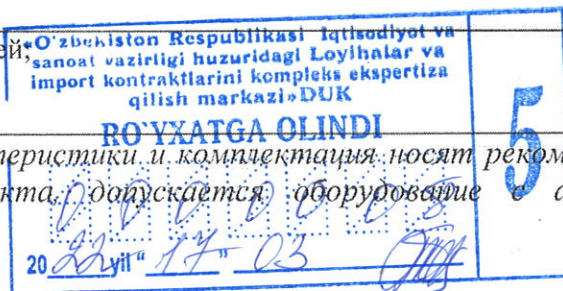 ей;
«O'zbekiston Respublikasi Iqtisodiyot va
sanoat vazirligi huzuridagi Loyihalar va
import kontraktlarini kompleks ekspertiza
qilish markazi»DUK
RO`YXATGA OLINDI
5
теристики и комплектация носят реком
кта, допускается оборудование с а
0 0 0 0 0 0 8
20 22 yil " 17 " 03